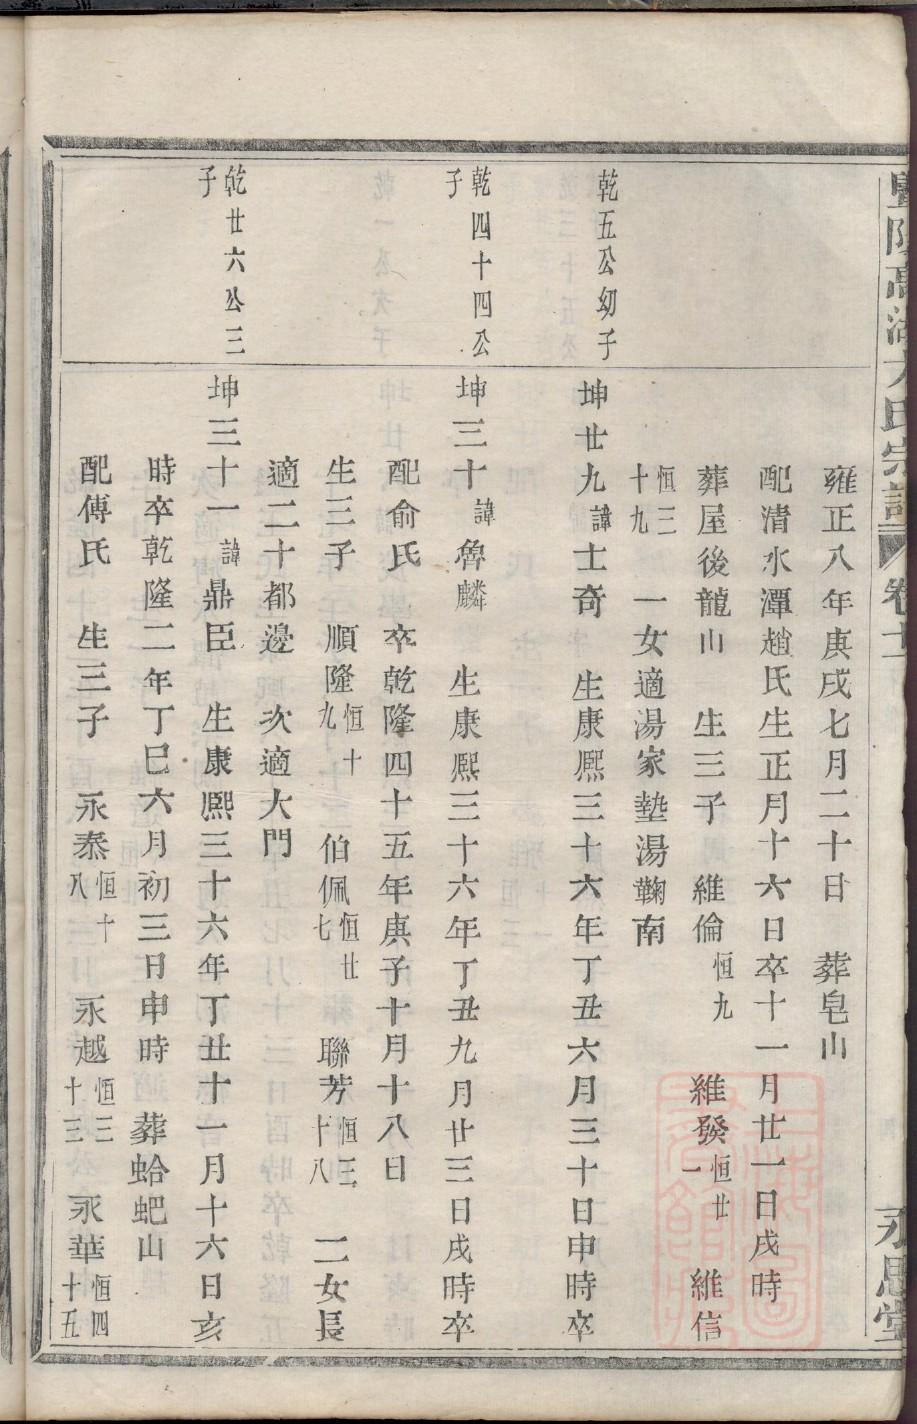 暨陽高湖方氏宗譜 卷十二 永思堂
雍正八年庚戌七月二十日 葬皂山
配清水潭趙氏生正月十六日卒十一月廿一日戌時
葬屋後龍山 生三子 維倫恒九 維發恒廿一 維信
恒三十九 一女適湯家墊湯鞠南
乾五公幼子 坤廿九諱士奇 生康熈三十六年丁丑六月三十日申時卒
乾四十四公子 坤三十諱魯麟 生康熈三十六年丁丑九月廿三日戌時卒
配俞氏 卒乾隆四十五年庚子十月十八日
生三子 順隆恒十九 伯佩恒廿七 聯芳恒三十八 二女長
適二十都邊 次適大門
乾廿六公三子 坤三十一諱鼎臣 生康熈三十六年丁丑十一月十六日亥
時卒乾隆二年丁巳六月初三日申時 葬蛤蚆山
配傅氏 生三子 永泰恒十八 永越恒三十三 永華恒四十五